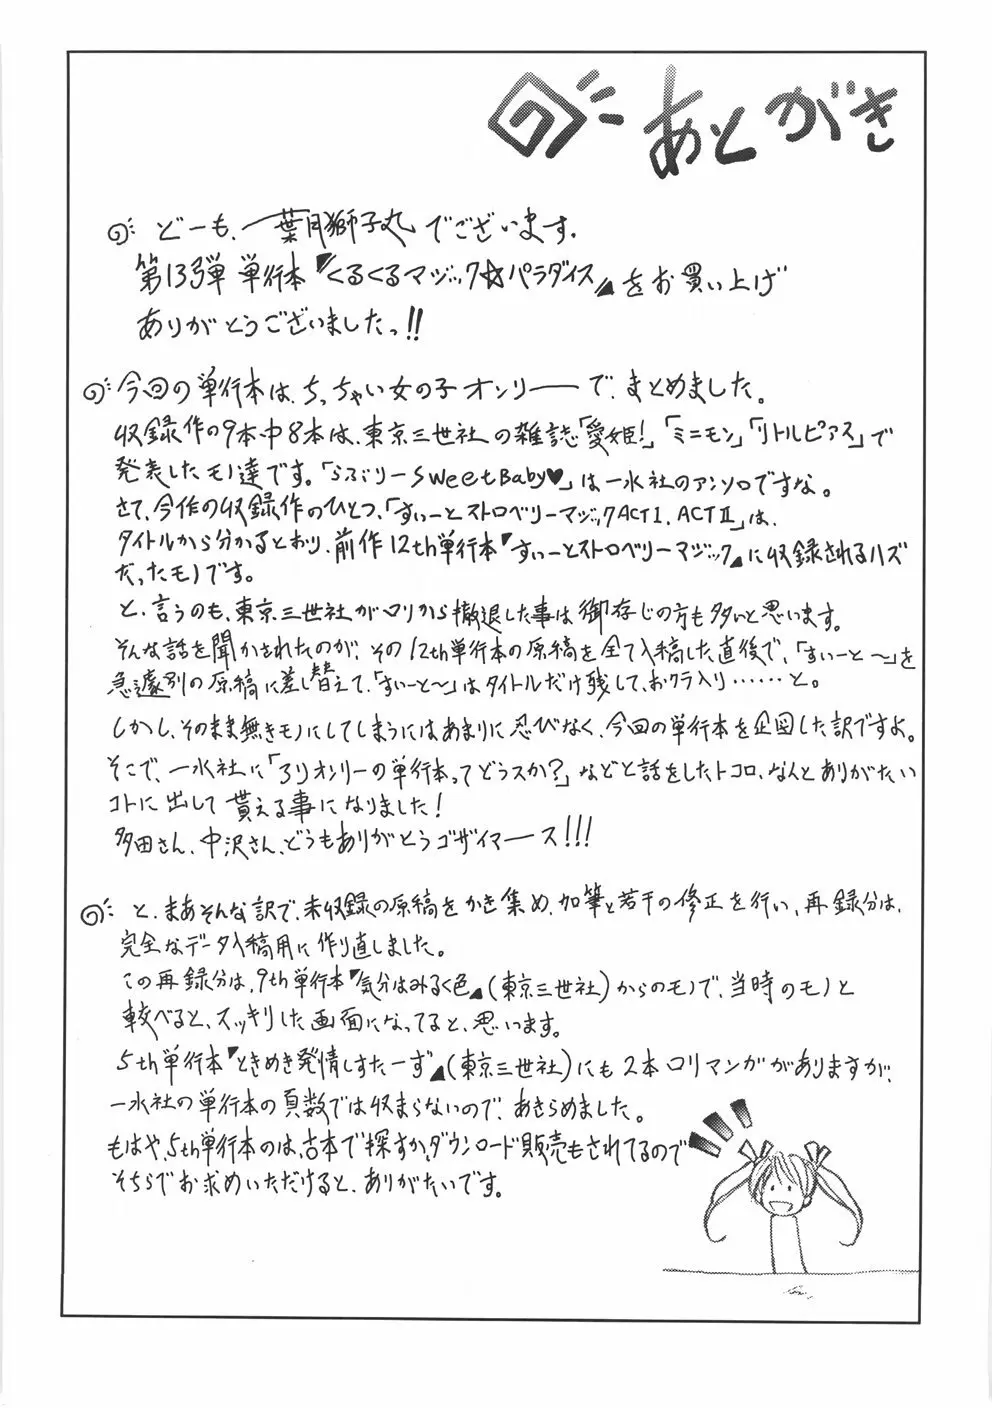 あとがき
どーも、一葉月獅子丸でございます。
第13弾 単行本『くるくるマジック☆パラダイス』をお買い上げ
ありがとうございましたっ!!
今回の単行本は、ちっちゃい女の子オンリーーで、まとめました。
収録作の9本中8本は、東京三世社の雑誌「愛姫!」「ミニモン」「リトルピアス」で
発表したモノ達です。「らぶりーSweetBaby♥」は一水社のアンソロですな。
さて、今作の収録作のひとつ、「すいーとストロベリーマジックACTⅠ、ACTⅡ」は、
タイトルから分かるとおり、前作12th単行本『すいーとストロベリーマジック』に収録されるハズ
だったモノです。
と、言うのも、東京三世社がロリから撤退した事は御存じの方も多いと思います。
そんな話を聞かされたのが、その12th単行本の原稿を全て入稿した直後で、「すいーと〜」を
急遽別の原稿に差し替えて、「すいーと〜」はタイトルだけ残して、おクラ入り……と。
しかし、そのまま無きモノにしてしまうにはあまりに忍びなく、今回の単行本を企図した訳ですよ。
そこで、一水社に「ろりオンリーの単行本ってどうスか?」などと話をしたトコロ、なんとありがたい
コトに出して貰える事になりました!
多田さん、中沢さん、どうもありがとうゴザイマース!!!
と、まあそんな訳で、未収録の原稿をかき集め、加筆と若干の修正を行い、再録分は、
完全なデータ入稿用に作り直しました。
この再録分は、9th単行本『気分はみるく色』(東京三世社)からのモノで、当時のモノと
較べると、スッキリした画面になってると、思います。
5th単行本『ときめき発情しすたーず』(東京三世社)にも2本ロリマンガがありますが、
一水社の単行本の頁数では収まらないので、あきらめました。
もはや、5th単行本のは、古本で探すか、ダウンロード販売もされてるので
そちらでお求めいただけると、ありがたいです。